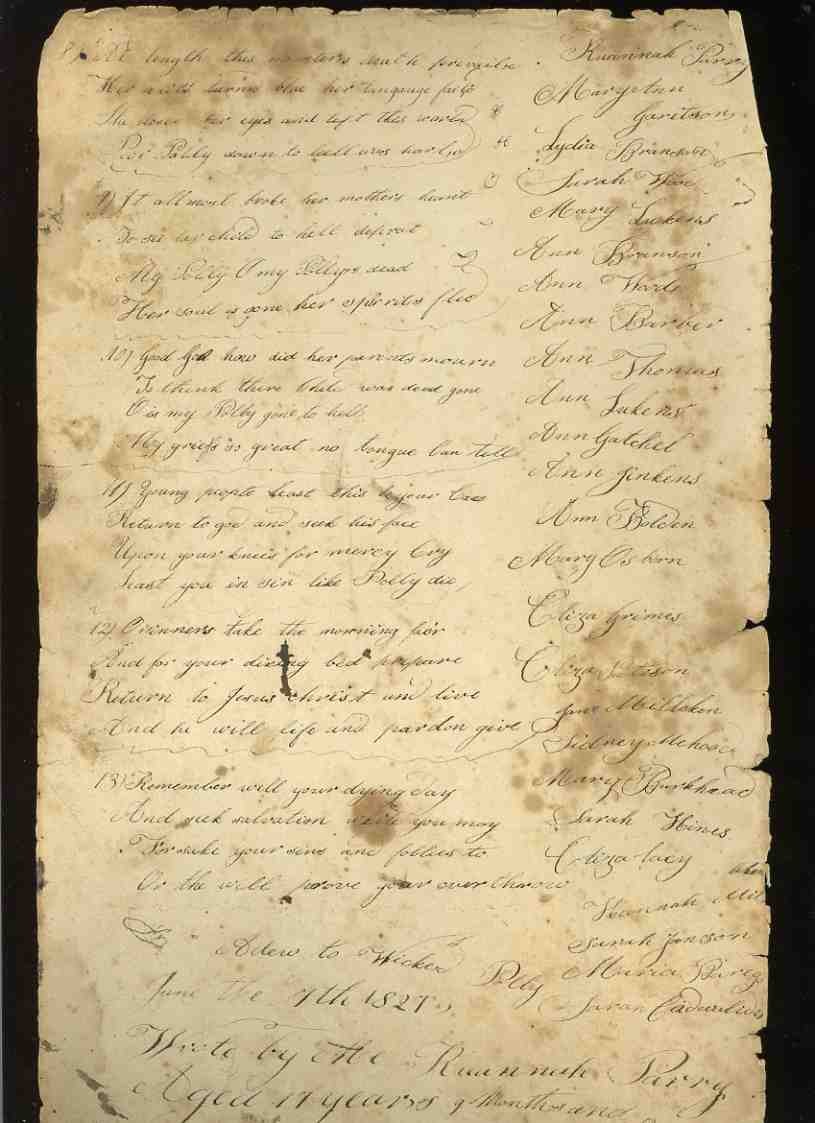 8) At length this monsters death prevails
Her nails turns blue her language fails
She closed her eyes and left this world
Poor Polly down to hell was hurled
9) It allmost broke her mothers heart
To see her child to hell depart
My Polly O my Pollys dead
Her soul is gone her spirits fled
10) Good God how did her parents mourn
To think there Child was dead gone
O is my Polly gone to hell
My griefs so great no tongue Can tell
11) Young people least this be your Case
Return to god and seek his face
Upon your knees for mercy Cry
Least you in sin like Polly die,
12) O sinners take the morning fair
And for your dieing bed prepare
Return to Jesus Christ and live
And he will life and pardon give
13) Remember well your dying day
And seek salvation while you may
Forsake your sins and follies to
Or the will prove your over throw
Adew to Wicked Polly
June the 7th 1827
Wrote by Me Ruannah Parry
Aged 17 years 9 Months and
Ruannah Parry
Mary Ann
Garetson
Lydia Branson
Sarah
Mary Lukens
Ann Branson
Ann Woods
Ann Barber
Ann Thomas
Ann Lukens
Ann Gatchel
Ann Jinkens
Ann Bolden
Mary Osborn
Eliza Grimes
Eliza
Jane Milleken
Sidney
Mary Burkhead
Sarah Hines
Eliza Lacy
Hannah
Sarah Jonson
Maria
Sarah Cadwalider